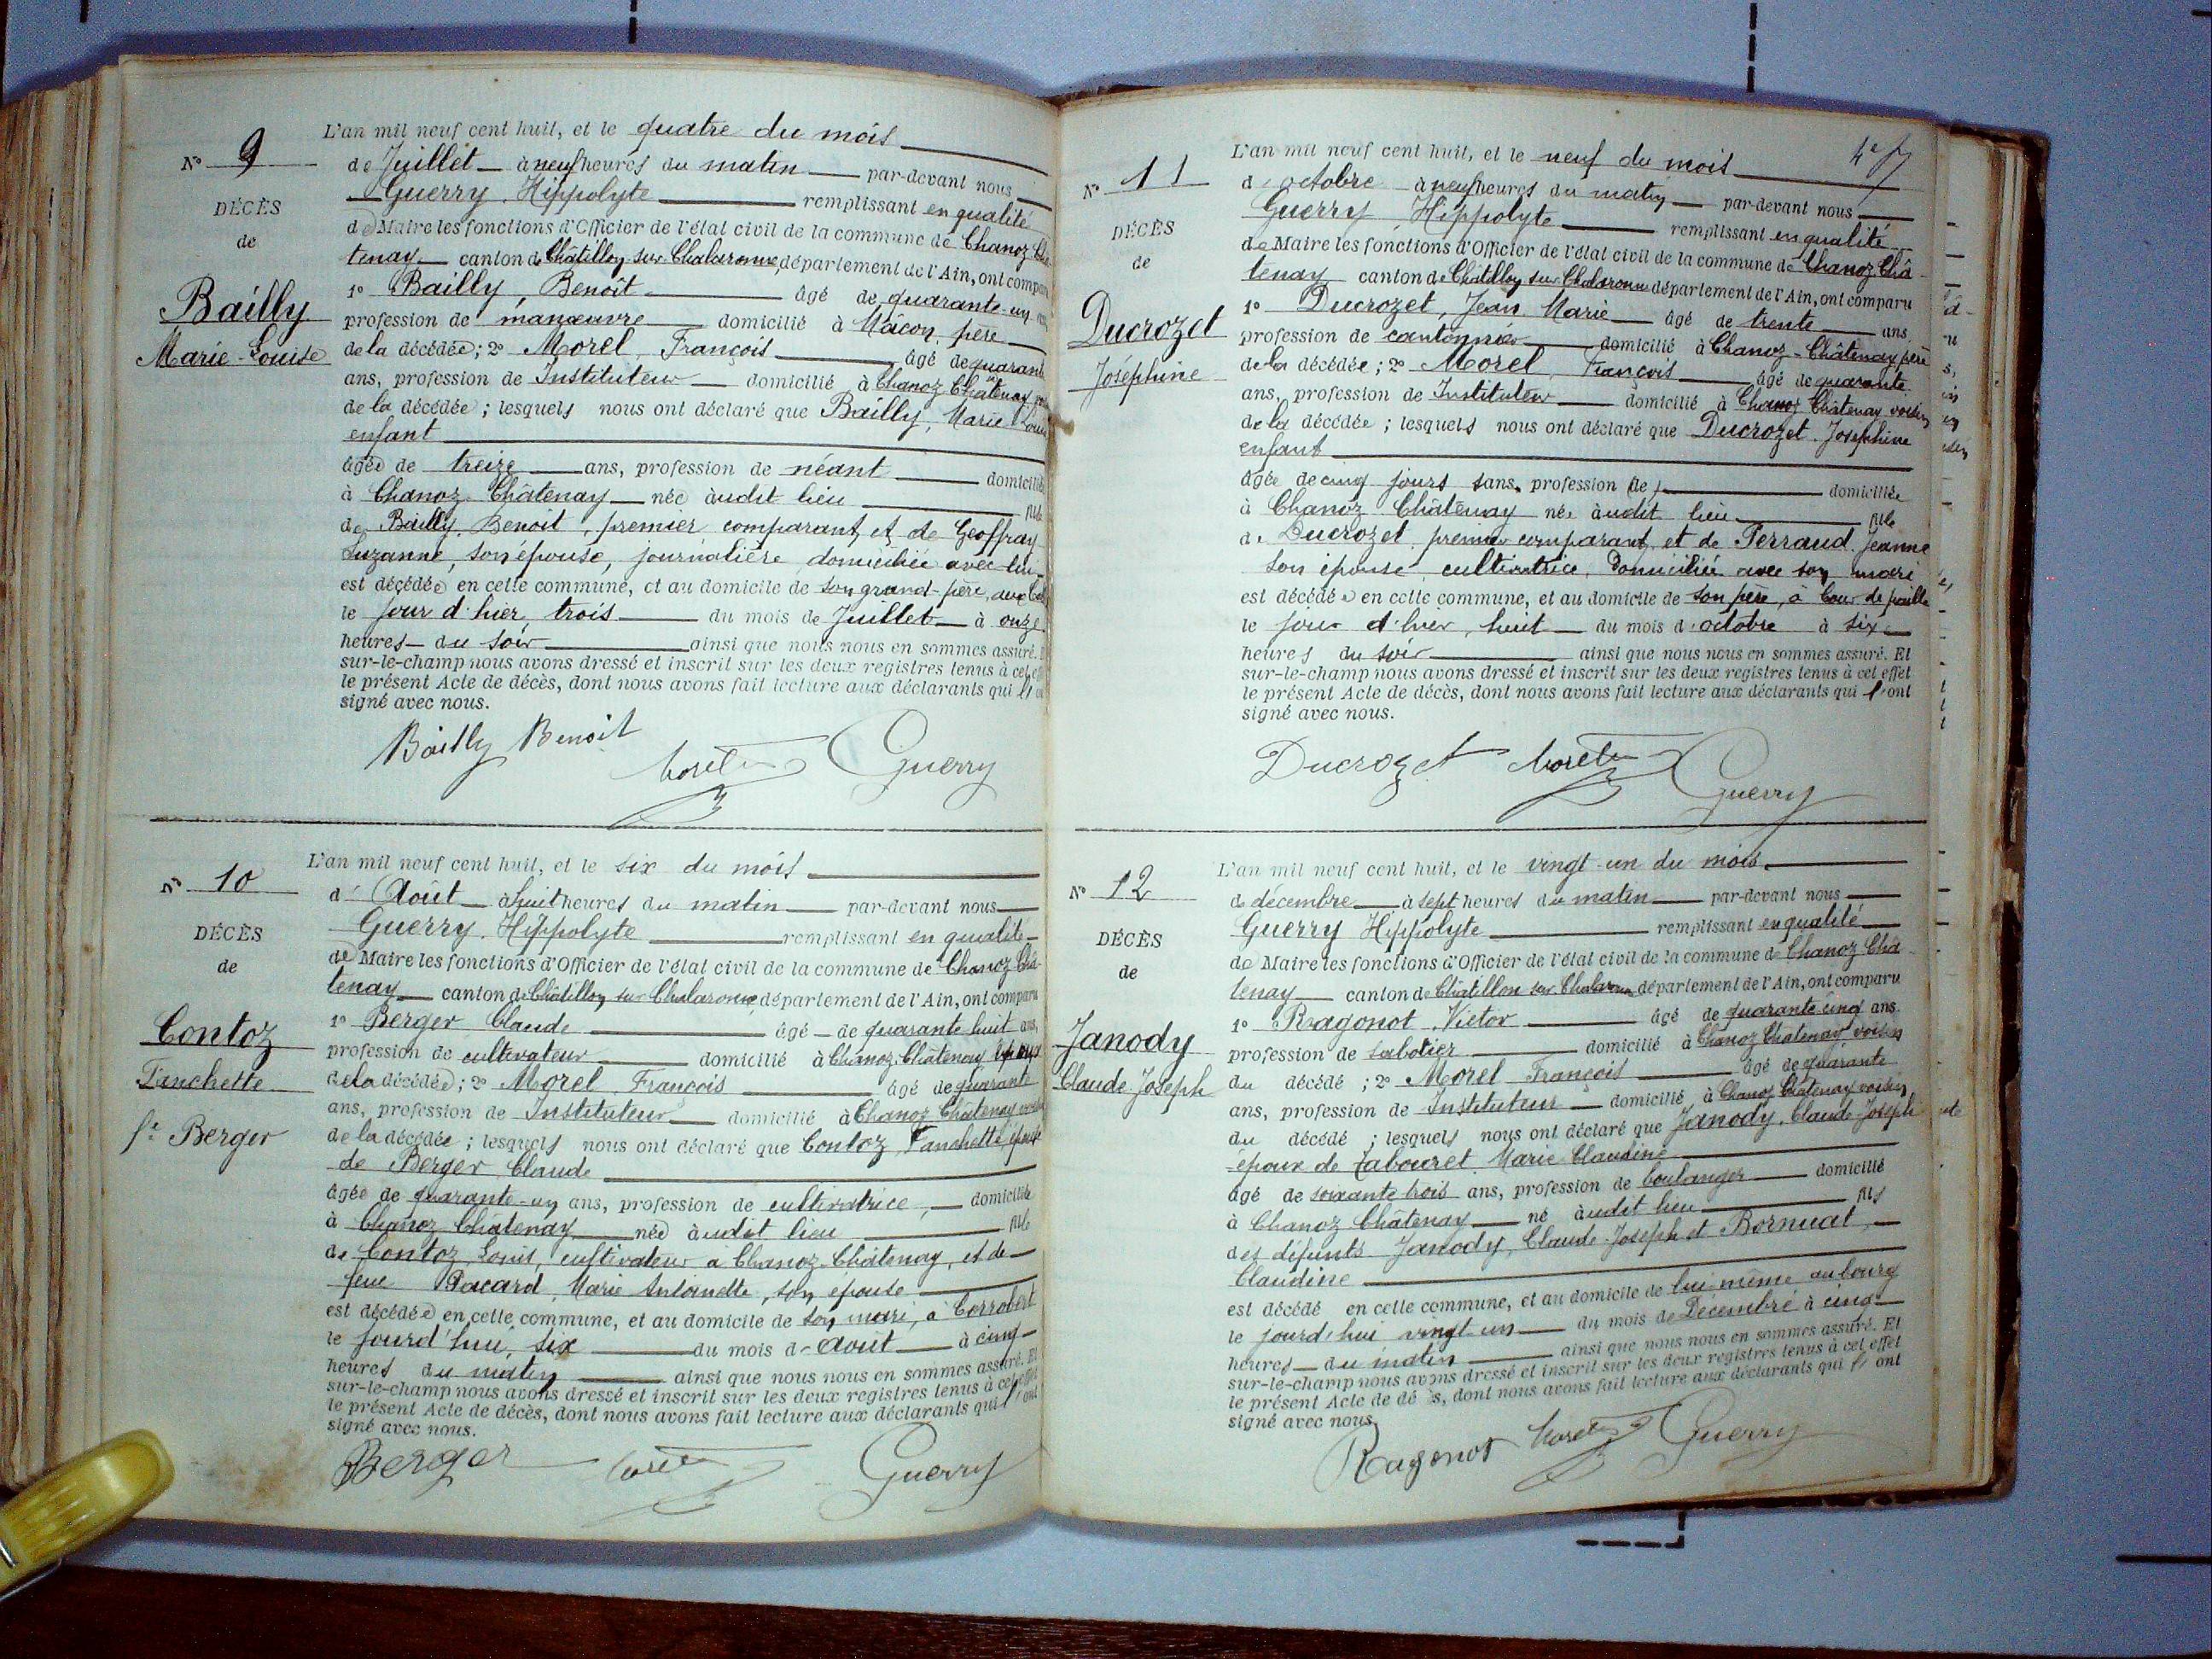 N° 9
DÉCÈS
de
Bailly
Marie-Louise
L'an mil neuf cent huit, et le quatre du mois
de Juillet à neuf heures du matin par-devant nous
Guerry, Hippolyte remplissant en qualité
de Maire les fonctions d'Officier de l'état civil de la commune de Chanoz Châ-
tenay canton de Châtillon sur Chalaronne, département de l'Ain, ont comparu
1° Bailly, Benoît âgé de quarante-un
profession de manœuvre domicilié à Mâcon, père
de la décédée; 2° Morel, François âgé de quarante
ans, profession de Instituteur domicilié à Chanoz Châtenay
de la décédée; lesquels nous ont déclaré que Bailly, Marie Louise
enfant
âgée de treize ans, profession de néant domiciliée
à Chanoz-Châtenay née audit lieu fille
de Bailly, Benoit, premier comparant, et de Geoffray
Suzanne, son épouse, journalière domiciliée avec lui
est décédée en cette commune, et au domicile de son grand-père,
le jour d'hier, trois du mois de Juillet à onze
heures du soir ainsi que nous nous en sommes assuré. Et
sur-le-champ nous avons dressé et inscrit sur les deux registres tenus à cet effet
le présent Acte de décès, dont nous avons fait lecture aux déclarants qui l'ont
signé avec nous.
Bailly Benoit Morel Guerry
N° 10
DÉCÈS
de
Contoz
Fanchette
fe Berger
L'an mil neuf cent huit, et le six du mois
d'Août à huit heures du matin par-devant nous
Guerry, Hippolyte remplissant en qualité
de Maire les fonctions d'Officier de l'état civil de la commune de Chanoz Châ-
tenay canton de Châtillon sur Chalaronne département de l'Ain, ont comparu
1° Berger Claude âgé de quarante huit ans,
profession de cultivateur domicilié à Chanoz-Châtenay époux
de la décédée; 2° Morel, François âgé de quarante
ans, profession de Instituteur domicilié à Chanoz Châtenay voisin
de la décédée; lesquels nous ont déclaré que Contoz Fanchette, épouse
de Berger Claude
âgée de quarante-un ans, profession de cultivatrice, domiciliée
à Chanoz Châtenay née audit lieu fille
de Contoz Louis, cultivateur à Chanoz-Châtenay, et de
feue Marie Antoinette, son épouse
est décédée en cette commune, et au domicile de son mari, à Corrobert
le jourd'hui, six du mois d'Aout à cinq
heures du matin ainsi que nous nous en sommes assuré. Et
sur-le-champ nous avons dressé et inscrit sur les deux registres tenus à cet effet
le présent Acte de décès, dont nous avons fait lecture aux déclarants qui l'ont
signé avec nous.
Berger Morel Guerry
N° 11
DÉCÈS
de
Ducrozet
Joséphine
L'an mil neuf cent huit, et le neuf du mois
d'octobre à neuf heures du matin par-devant nous
Guerry Hippolyte remplissant en qualité
de Maire les fonctions d'Officier de l'état civil de la commune de Chanoz Châ-
tenay canton de Châtillon sur Chalaronne département de l'Ain, ont comparu
1° Ducrozet, Jean Marie âgé de trente ans
profession de cantonnier domicilié à Chanoz-Châtenay père
de la décédée; 2° Morel François âgé de quarante
ans, profession de Instituteur domicilié à Chanoz Châtenay voisin
de la décédée; lesquels nous ont déclaré que Ducrozet Joséphine
enfant
âgée de cinq jours sans profession (de) domiciliée
à Chanoz Châtenay née audit lieu fille
de Ducrozet, premier comparant, et de Perraud Jeanne
son épouse, cultivatrice, domiciliée avec son mari
est décédée en cette commune, et au domicile de son père, à Cour de paille
le jour d'hier, huit du mois d'octobre à six
heures du soir ainsi que nous nous en sommes assuré. Et
sur-le-champ nous avons dressé et inscrit sur les deux registres tenus à cet effet
le présent Acte de décès, dont nous avons fait lecture aux déclarants qui l'ont
signé avec nous.
Ducrozet Morel Guerry
N° 12
DÉCÈS
de
Janody
Claude Joseph
L'an mil neuf cent huit, et le vingt-un du mois
de décembre à sept heures du matin par-devant nous
Guerry Hippolyte remplissant en qualité
de Maire les fonctions d'Officier de l'état civil de la commune de Chanoz Châ-
tenay canton de Châtillon sur Chalaronne département de l'Ain, ont comparu
1° Ragonot, Victor âgé de quarante cinq ans
profession de sabotier domicilié à Chanoz Châtenay voisin
du décédé; 2° Morel François âgé de quarante
ans, profession de Instituteur domicilié à Chanoz Châtenay voisin
du décédé; lesquels nous ont déclaré que Janody, Claude-Joseph
époux de Tabouret Marie Claudine
âgé de soixante trois ans, profession de boulanger domicilié
à Chanoz Châtenay né audit lieu fils
des défunts Janody, Claude-Joseph et Bornuat,
Claudine
est décédé en cette commune, et au domicile de lui-même au bourg
le jourd'hui vingt-un du mois de Décembre à cinq
heures du matin ainsi que nous nous en sommes assuré. Et
sur-le-champ nous avons dressé et inscrit sur les deux registres tenus à cet effet
le présent Acte de décès, dont nous avons fait lecture aux déclarants qui l'ont
signé avec nous.
Ragonot Morel Guerry